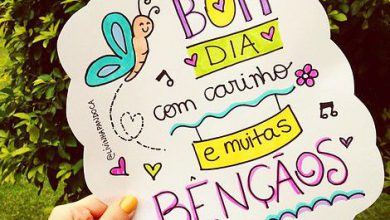 BOM
DIA
com carinho
e muitas
BÊNÇÃOS